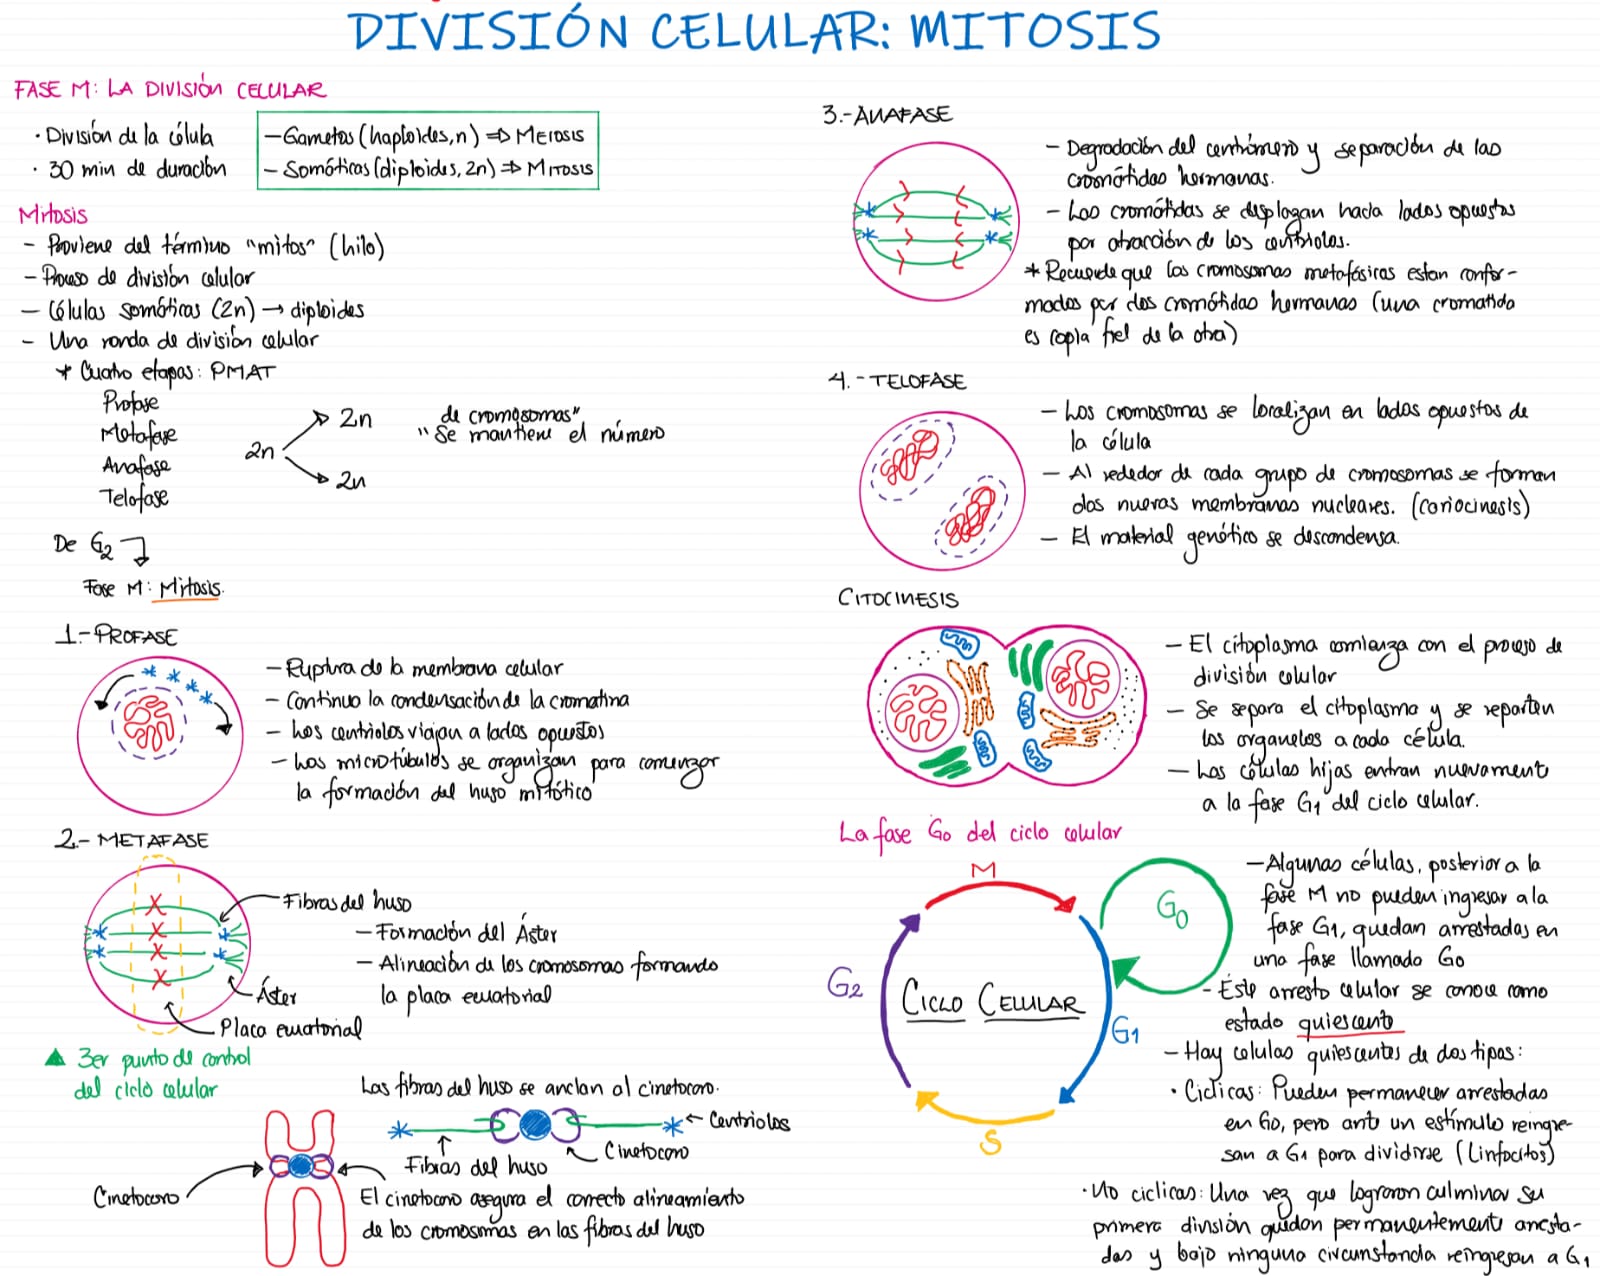 DIVISIÓN CELULAR: MITOSIS
FASE M: LA DIVISIÓN CELULAR
· División de la célula
· 30 min de duración
– Gametos (haploides, n) ⇒ MEIOSIS
– Somáticas (diploides, 2n) ⇒ MITOSIS
Mitosis
– Proviene del término "mitos" (hilo)
– Proceso de división celular
– Células somáticas (2n) → diploides
– Una ronda de división celular
* Cuatro etapas: PMAT
Profase
Metafase
Anafase
Telofase
2n
2n
2n
de cromosomas"
"Se mantiene el número
De G2
Fase M: Mitosis.
1.- PROFASE
– Ruptura de la membrana celular
– Continuo la condensación de la cromatina
– Los centriolos viajan a lados opuestos
– Los microtúbulos se organizan para comenzar
la formación del huso mitótico
2.- METAFASE
Fibras del huso
– Formación del Áster
– Alineación de los cromosomas formando
la placa ecuatorial
Áster
Placa ecuatorial
3er punto de control
del ciclo celular
Las fibras del huso se anclan al cinetocoro.
Centriolos
Fibras del huso
Cinetocoro
Cinetocoro
El cinetocoro asegura el correcto alineamiento
de los cromosomas en las fibras del huso
3.- ANAFASE
– Degradación del centrómero y separación de las
cromátidas hermanas.
– Las cromátidas se desplazan hacia lados opuestos
por atracción de los centriolos.
* Recuerde que los cromosomas metafásicos estan confor-
mados por dos cromátidas hermanas (una cromatida
es copia fiel de la otra)
4.- TELOFASE
– Los cromosomas se localizan en lados opuestos de
la célula
– Al rededor de cada grupo de cromosomas se forman
dos nuevas membranas nucleares. (cariocinesis)
– El material genético se descondensa.
CITOCINESIS
– El citoplasma comienza con el proceso de
división celular
– Se separa el citoplasma y se reparten
los organelos a cada célula.
– Las células hijas entran nuevamente
a la fase G1 del ciclo celular.
La fase G0 del ciclo celular
M
G0
G2
CICLO CELULAR
G1
S
– Algunas células, posterior a la
fase M no pueden ingresar a la
fase G1, quedan arrestadas en
una fase llamada G0
– Éste arresto celular se conoce como
estado quiescente
– Hay celulas quiescentes de dos tipos:
· Ciclicas: Pueden permanecer arrestadas
en G0, pero ante un estímulo reingre-
san a G1 para dividirse (Linfocitos)
· No ciclicas: Una vez que lograron culminar su
primera división quedan permanentemente arresta-
das y bajo ninguna circunstancia reingresan a G1